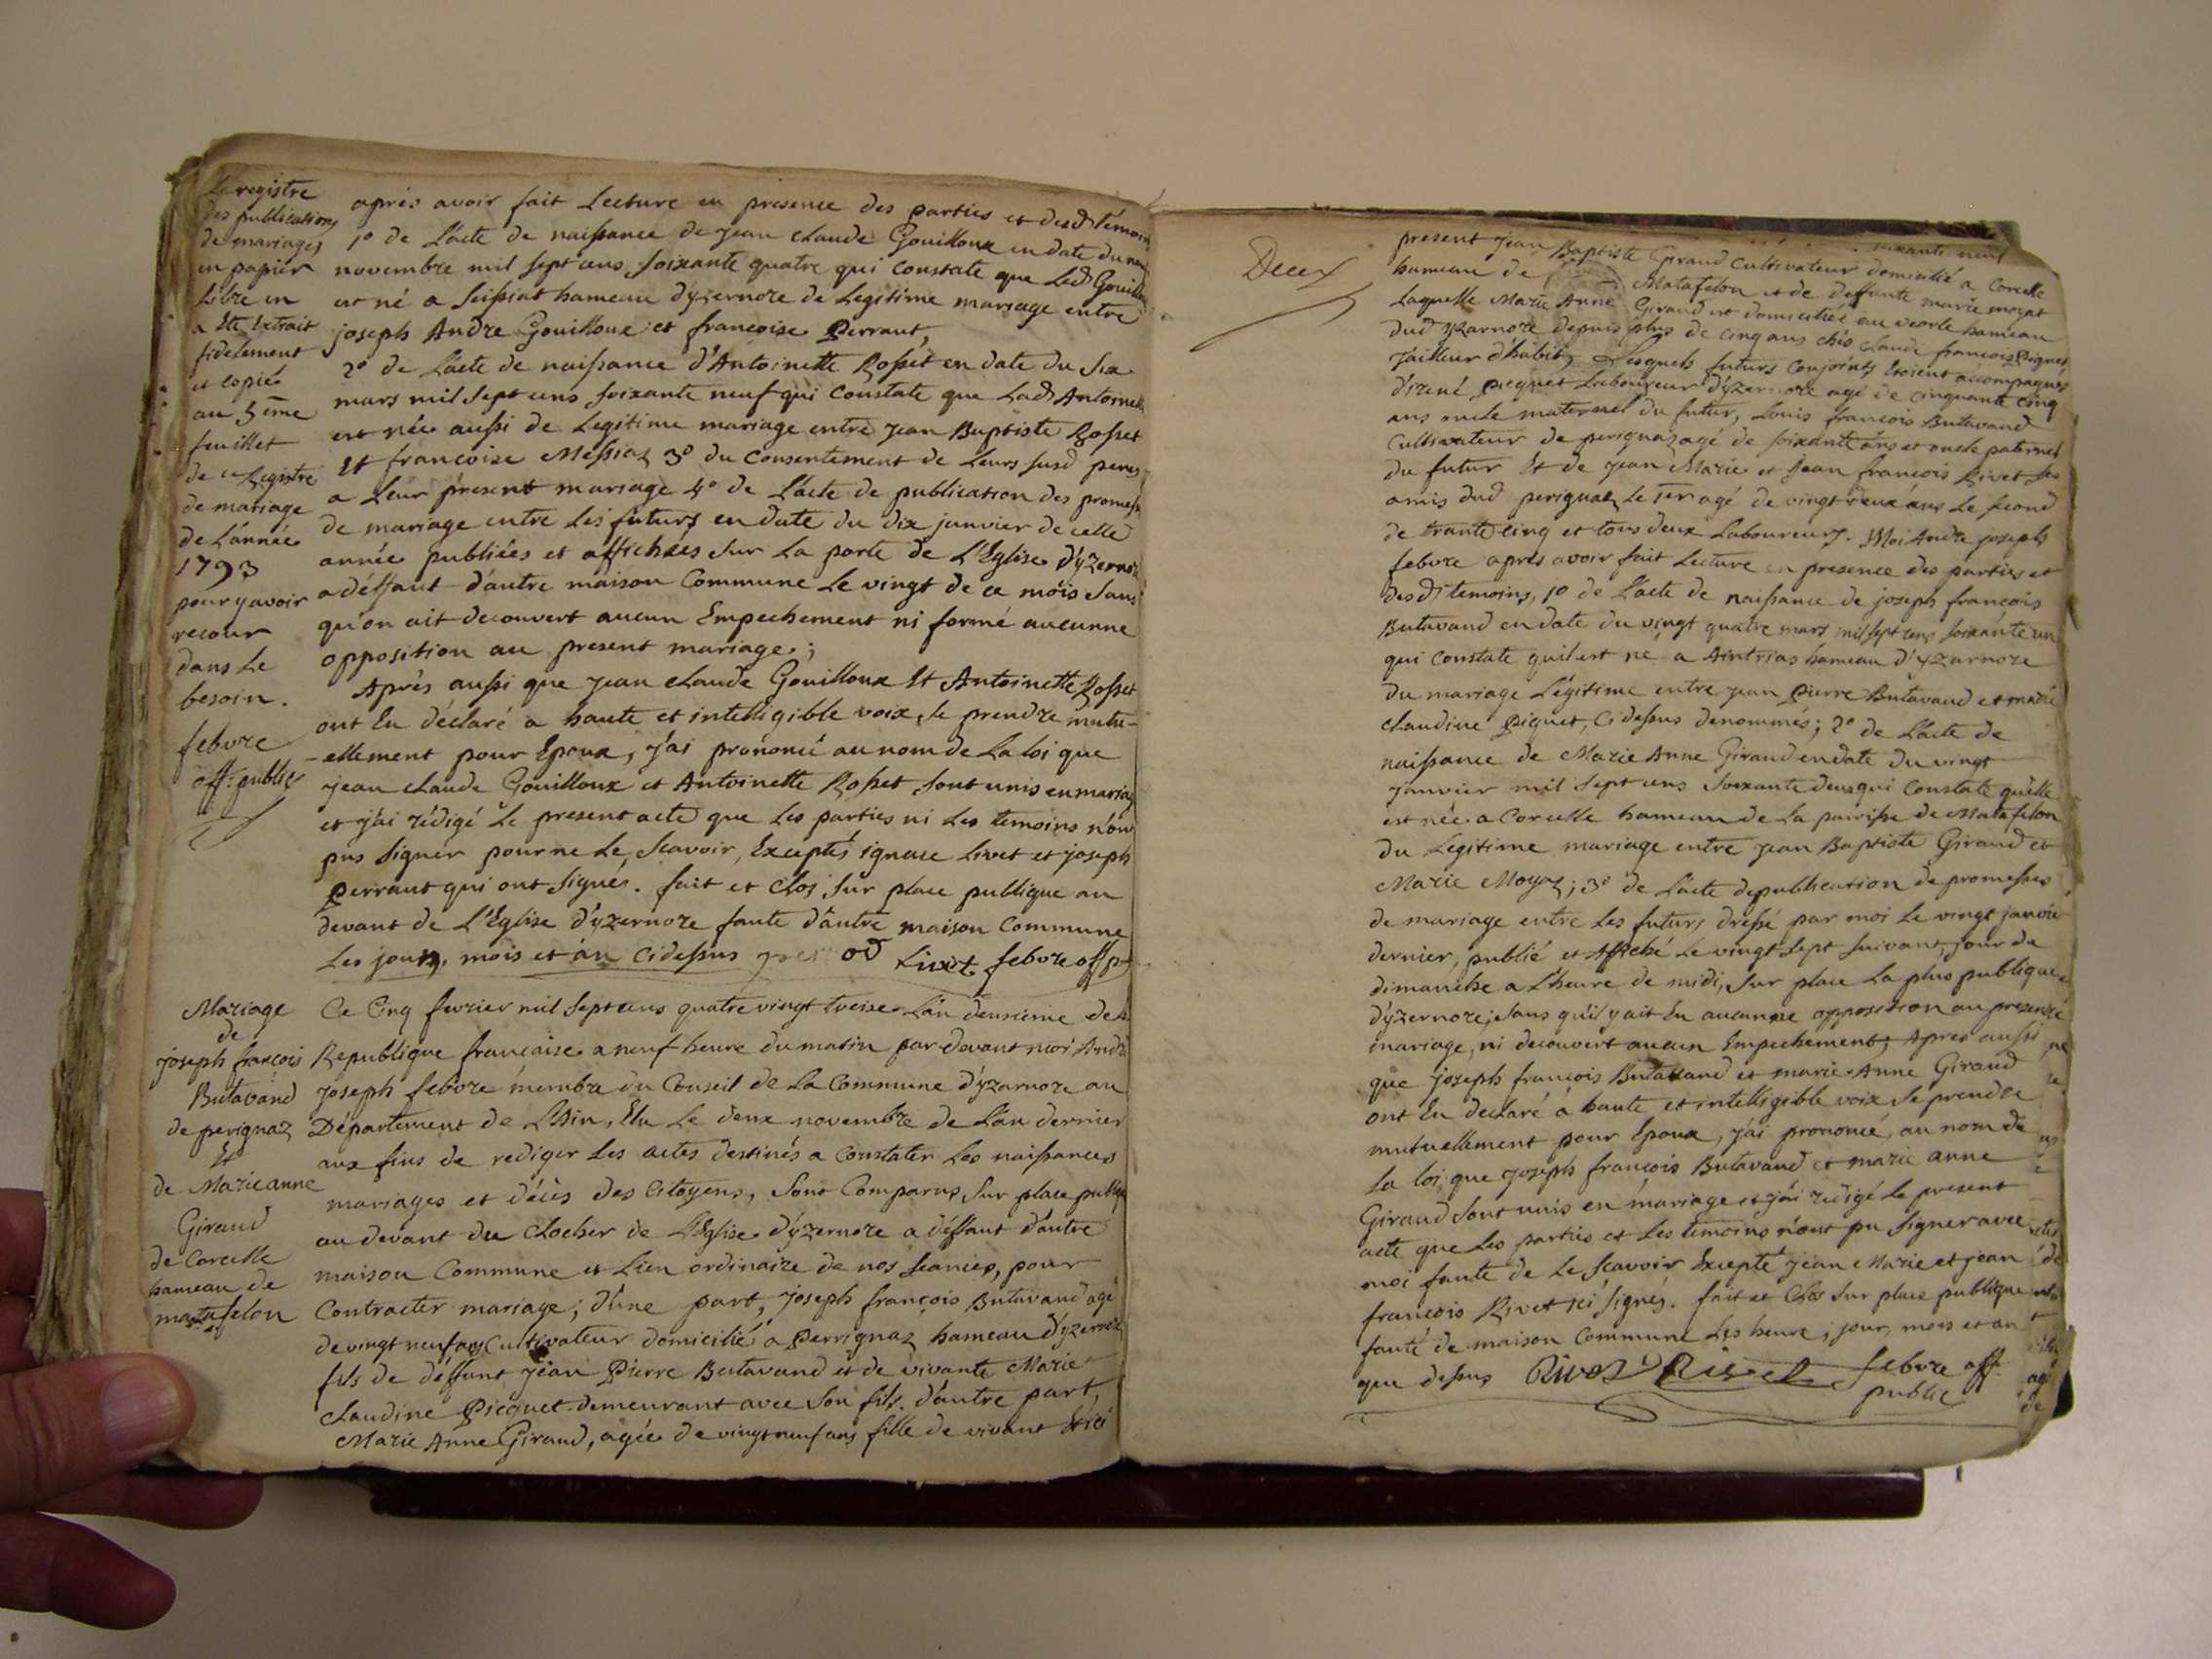 Le registre
des publications
de mariages
en papier
Libre en
a Eté Extrait
fidelement
et copié
au 5eme
feuillet
de ce Registre
de mariage
de L'année
1793
pour y avoir
recour
dans Le
besoin.
febvre
off: public
après avoir fait Lecture en presence des parties et desd témoin
1o de L'acte de naissance de jean claude Gouilloux en date du
novembre mil sept cens soixante quatre qui constate que Led Gouillou
est né a seissiat hameau d'yzernore de Legitime mariage entre
joseph Andre Gouilloux et françoise Perraut,
2o de L'acte de naissance d'Antoinette Rosset en date du six
mars mil sept cens soixante neuf qui constate que Lad Antoinette
est née aussi de Legitime mariage entre jean Baptiste Rosset
Et francoise Messiaz 3o du consentement de Leurs susd peres
a Leur present mariage 4o de L'acte de publication des promess
de mariage entre Les futurs en date du dix janvier de cette
année publiées et affichées sur La porte de L'Eglise d'yzernore
a déffaut d'autre maison Commune Le vingt de ce mois sans
qu'on ait decouvert aucun Empechement ni formé aucunne
opposition au present mariage;
Après aussi que jean claude Gouilloux Et Antoinette Rosset
ont Eu déclaré a haute et intelligible voix, se prendre mutu-
-ellement pour Epoux, j'ai prononcé au nom de La loi que
jean claude Gouilloux et Antoinette Rosset sont unis en mariag
et j'ai rédigé Le present acte que Les parties ni Les temoins n'on
pus signer pour ne Le scavoir, Exceptés ignace Livet et joseph
perraut qui ont signés. fait et clos sur place publique au
devant de L'Eglise d'yzernore faute d'autre maison commune
Les jours, mois et an cidessus Livet febvre off p
Mariage
de
joseph françois
Butavand
de perignaz
Et
de Marie anne
Giraud
de Corcelle
hameau de
matafelon
Ce Cinq fevrier mil sept cens quatre vingt treise L'an deuxieme de la
Republique francaise a neuf heure du matin par-devant moi André
joseph febvre membre du Conseil de La Commune d'yzarnore au
Département de L'Ain, Elu Le deux novembre de L'an dernier
aux fins de rediger Les actes destinés a constater Les naissances
mariages et décès des citoyens, sont Comparus, sur place publiq
au devant du clocher de L'Eglise d'yzernore a déffaut d'autre
maison Commune et Lieu ordinaire de nos séances, pour
Contracter mariage; d'une part, joseph françois Butavand agé
de vingt neuf ans Cultivateur domicilié a perrignaz hameau d'yzernore
fils de deffunt jean Pierre Butavand et de vivante Marie
claudine Picquet demeurant avec son fils. d'autre part,
Marie Anne Giraud, agée de vingt neuf ans fille de vivant Et ici
Deux
present jean Baptiste Giraud cultivateur domicilié a Corcelle
hameau de Matafelon et de deffunte marie moyat
Laquelle Marie Anne Giraud est domiciliée au hameau
dud yzarnore depuis plus de cinq ans chés claude francois
Tailleur d'habits, Lesquels futurs Conjoints Etoient accompagnés
picquet Laboureur d'yzernore agé de cinquante cinq
ans oncle maternel du futur, Louis francois Butavand
Cultivateur de perignaz agé de soixante ans et oncle paternel
du futur Et de jean Marie et jean françois Rivet ses
amis dud perignaz Le 1er agé de vingt deux ans Le second
de trante cinq et tous deux Laboureurs. Moi André joseph
febvre apres avoir fait Lecture en presence des parties et
desd temoins, 1o de L'acte de naissance de joseph françois
Butavand en date du vingt quatre mars mil sept cens soixante un
qui constate quil est né a Aintrias hameau d'yzarnore
du mariage Légitime entre jean pierre Butavand et marie
claudine Piquet, Cidessus denommés; 2o de L'acte de
naissance de Marie Anne Giraud en date du vingt
janvier mil sept cens soixante deux qui Constate quelle
est née a Corcelle hameau de La paroisse de Matafelon
du Legitime mariage entre jean Baptiste Giraud et
Marie Moyaz; 3o de L'acte de publication de promesses
de mariage entre Les futurs dressé par moi Le vingt janvie
dernier, publié et affiché Le vingt sept suivant, jour de
dimanche a L'heure de midi, sur place La plus publique
d'yzernore; sans quil y ait Eu aucunne opposition au present
mariage, ni decouvert aucun Empechement, Apres aussi
que joseph francois Butavand et marie Anne Giraud
ont Eu declaré a haute et intelligible voix se prendre
mutuellement pour Epoux, j'ai prononcé, au nom de
La loi, que joseph françois Butavand et marie anne
Giraud sont unis en mariage et j'ai redigé Le present
acte que Les parties et Les temoins n'ont pu signer avec
moi faute de Le scavoir Excepté jean Marie et jean
francois Rivet ici signés. fait et Clos sur place publique
faute de maison Commune Les heure, jour, mois et an
que dessus Rivet Rivet febvre off.
public